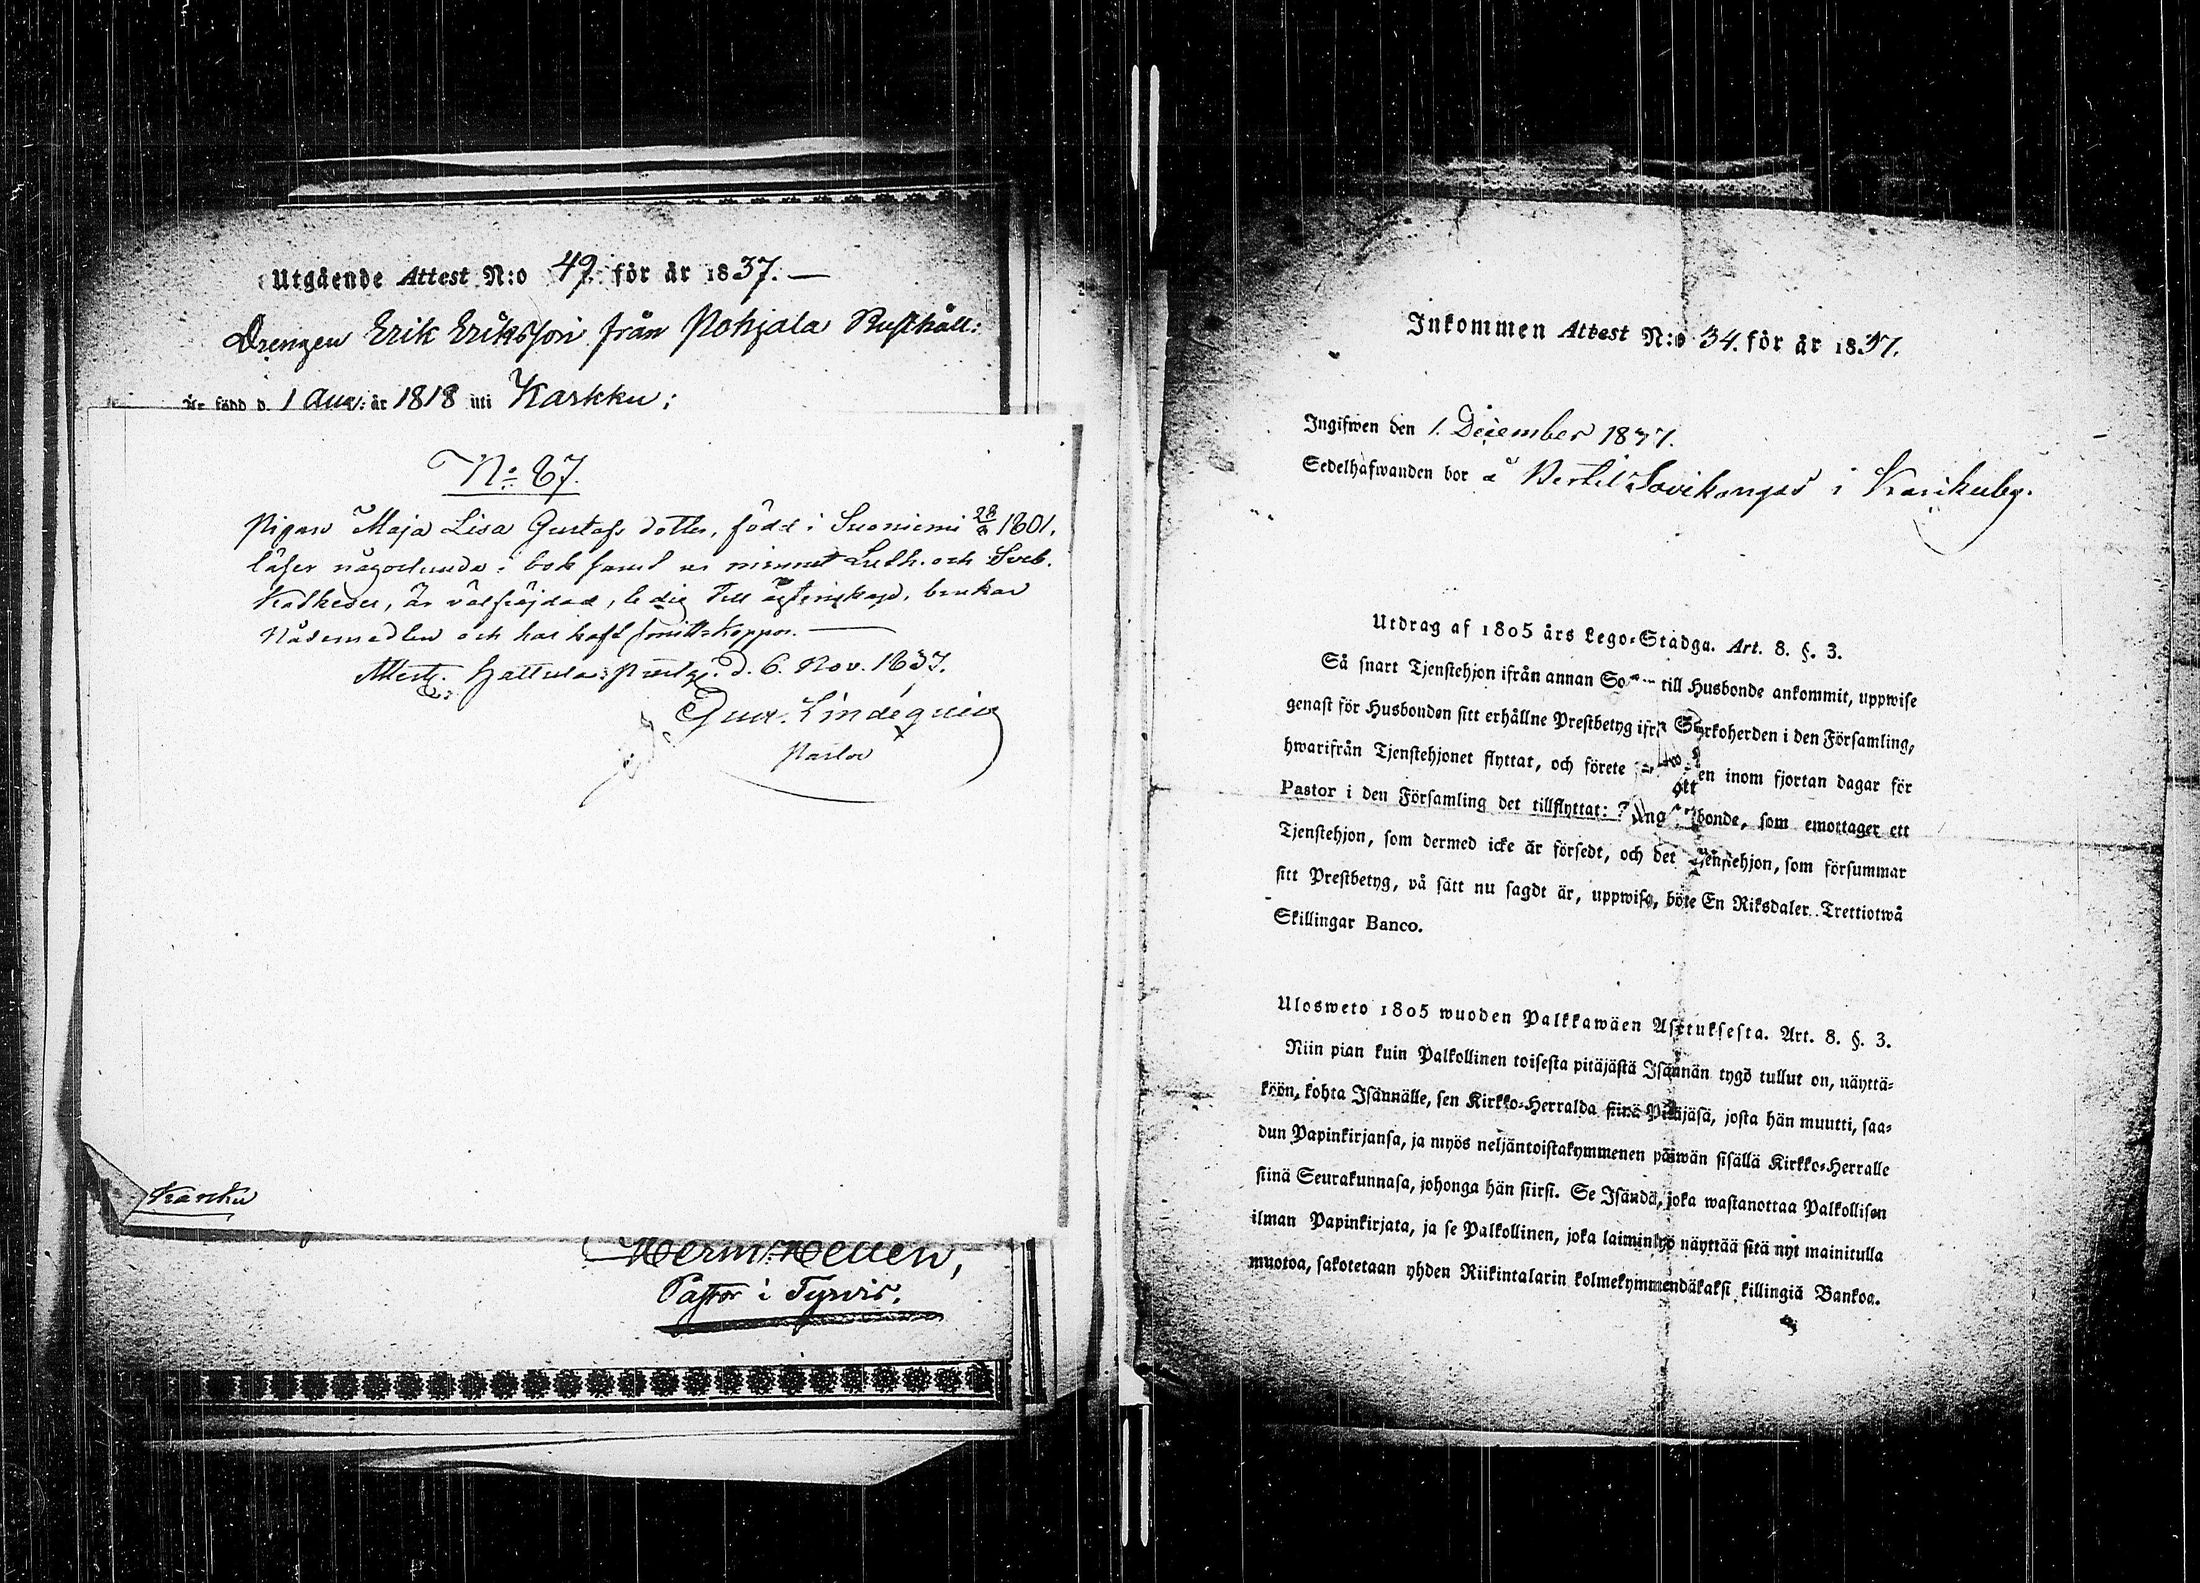 Utgående Attest N:o 49. för år 1837. —
Drengen Erik Eriksson från Pohjala Rusthåll:
Är född d. 1 Aug: år 1818 uti Karkku;
No 67.
Pigan Maja Lisa Gustafs dotter, född i Suoniemi 28 1801,
läser någorlunda i bok samt ur minnet Luth. och Sveb.
Katheser, är välfräjdad, ledig till ägtenskap, brukar
Nådemedlen och har haft Koppor. —
Attest. Hattula d. 6. Nov. 1837.
Gust. Lindequist
Pastor
Karcku
Herm: Hellen,
Pastor i Tyrvis.
Inkommen Attest N:o 34. för år 1837.
Ingifwen den 1. December 1837.
Sedelhafwanden bor å Bertil Sovikangas i Karckuby.
Utdrag af 1805 års Lego-Stadga. Art. 8. §. 3.
Så snart Tjenstehjon ifrån annan till Husbonde ankommit, uppwise
genast för Husbonden sitt erhållne Prestbetyg ifrån Kyrkoherden i den Församling,
hwarifrån Tjenstehjonet flyttat, och förete inom fjortan dagar för
Pastor i den Församling det tillflyttat: som emottager ett
Tjenstehjon, som dermed icke är försedt, och det Tjenstehjon, som försummar
sitt Prestbetyg, på sätt nu sagdt är, uppwisa, böte En Riksdaler Trettiotwå
Skillingar Banco.
Ulosweto 1805 wuoden Palkkawäen Asetuksesta. Art. 8. §. 3.
Niin pian kuin Palkollinen toisesta pitäjästä Isännän tygö tullut on, näyttä-
köön, kohta Isännälle, sen Kirkko-Herralda siinä Pitäjäsä, josta hän muutti, saa-
dun Papinkirjansa, ja myös neljäntoistakymmenen päiwän sisällä Kirkko-Herralle
siinä Seurakunnasa, johonga hän siirsi. Se Isändä, joka wastanottaa Palkollisen
ilman Papinkirjata, ja se Palkollinen, joka laiminlyö näyttää sitä nyt mainitulla
muotoa, sakotetaan yhden Riikintalarin kolmekymmendäkaksi killingiä Bankoa.